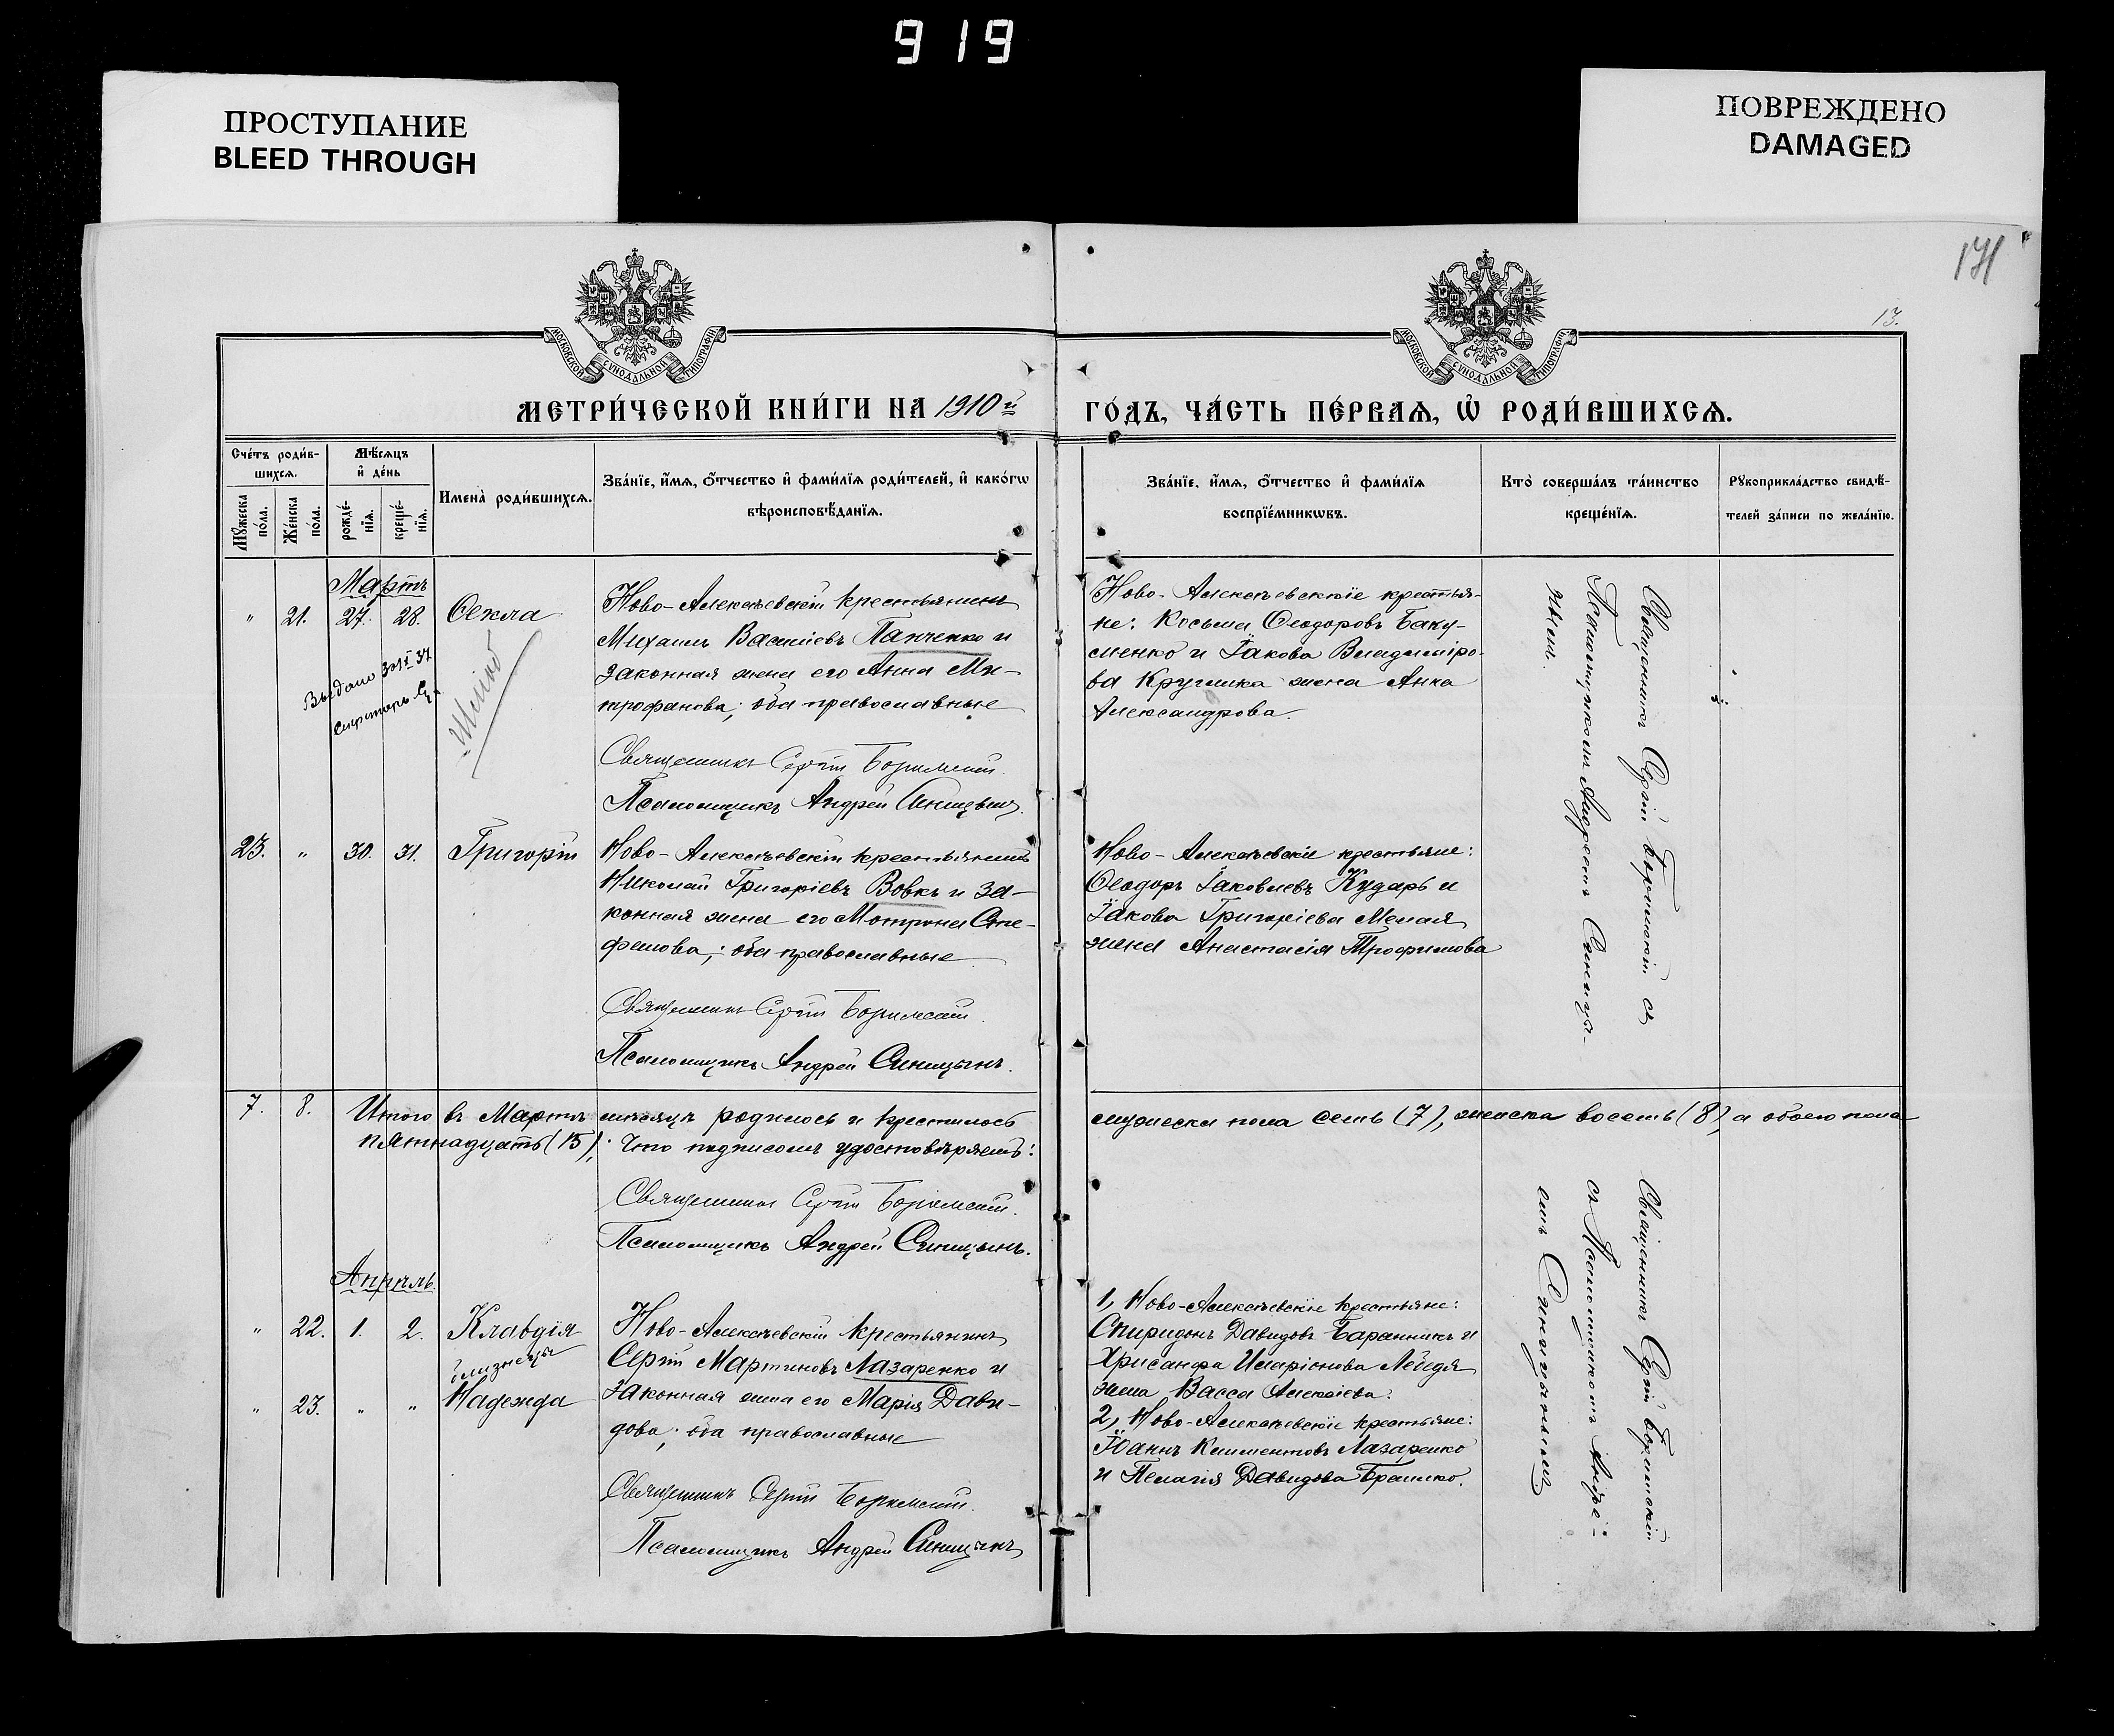 919
ПРОСТУПАНИЕ
BLEED THROUGH
ПОВРЕЖДЕНО
DAMAGED
171
13.
МОСКОВСКОЙ СѴНОДАЛЬНОЙ ТИПОГРАФІИ
МОСКОВСКОЙ СѴНОДАЛЬНОЙ ТИПОГРАФІИ
МЕТРИ́ЧЕСКОЙ КНИ́ГИ НА 1910й
ГО́ДЪ, ЧА́СТЬ ПЕ́РВАѦ, Ѡ҆ РОДИ́ВШИХСѦ.
Сче́тъ роди́в-
шихсѧ.
Мꙋжеска
по́ла.
Же́нска
по́ла.
Мѣ́сѧцъ
и҆ де́нь
рожде́-
нїѧ.
креще́-
нїѧ.
Имена̀ роди́вшихсѧ.
Зва́нїе, и҆́мѧ, ѻ҆́тчество и҆ фами́лїѧ роди́телей, и҆ како́гѡ
вѣроисповѣ́данїѧ.
Зва́нїе, и҆́мѧ, ѻ҆́тчество и҆ фами́лїѧ
воспрїе́мникѡвъ.
Кто̀ соверша́лъ та́инство
креще́нїѧ.
Рꙋкоприкла́дство свидѣ́-
телей за́писи по жела́нїю.
Мартъ
" 21. 27. 28. Ѳекла
Выдано
Ново-Алексѣевскій крестьянинъ
Михаилъ Василіевъ Панченко и
законная жена его Анна Ми-
трофанова; оба православные
Священникъ Сергій
Псаломщикъ Андрей Синицынъ
Ново-Алексѣевскіе крестья-
не: Косьма Ѳеодоровъ Баку-
менко и Іакова Владиміро-
ва Круглика жена Анна
Александрова.
Священникъ Сергій съ
Псаломщикомъ Андреемъ Синицы-
нымъ.
23. " 30. 31. Григорій
Ново-Алексѣевскій крестьянинъ
Николай Григоріевъ Вовкъ и за-
конная жена его Мотрона Сте-
фанова; оба православные
Священникъ Сергій
Псаломщикъ Андрей Синицынъ.
Ново-Алексѣевскіе крестьяне:
Ѳеодоръ Іаковлевъ Кударь и
Іакова Григоріева
жена Анастасія Трофимова
7. 8. Итого въ Мартѣ мѣсяцѣ родилось и крестилось
мужеска пола семь (7), женска восемь (8), а обоего пола
пятнадцать (15); Что подписомъ удостовѣряемъ:
Священникъ Сергій
Псаломщикъ Андрей Синицынъ.
Апрѣль.
" 22. 1. 2. Клавдія
близнецы
" 23. " " Надежда
Ново-Алексѣевскій крестьянинъ
Сергій Мартиновъ Лазаренко и
законная жена его Марія Дави-
дова; оба православные
Священникъ Сергій
Псаломщикъ Андрей Синицынъ
1, Ново-Алексѣевскіе крестьяне:
Спиридонъ Давидовъ Баранникъ и
Хрисанфа Иларіонова Лебедя
жена Васса Алексіева.
2, Ново-Алексѣевскіе крестьяне:
Іоаннъ Климентовъ Лазаренко
и Пелагія Давидова
Священникъ Сергій
съ Псаломщикомъ Андре-
емъ Синицынымъ